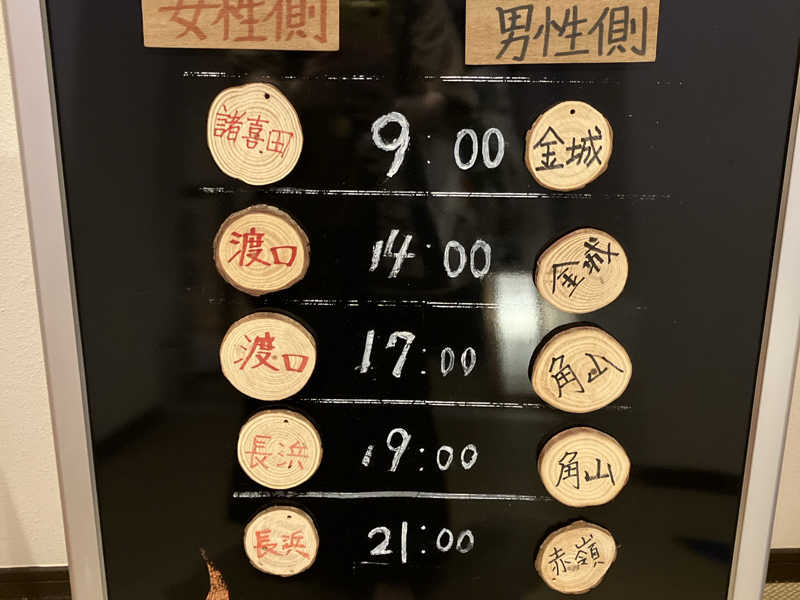 女性側 男性側
諸喜田 9:00 金城
渡口 14:00 金城
渡口 17:00 角山
長浜 19:00 角山
長浜 21:00 赤嶺